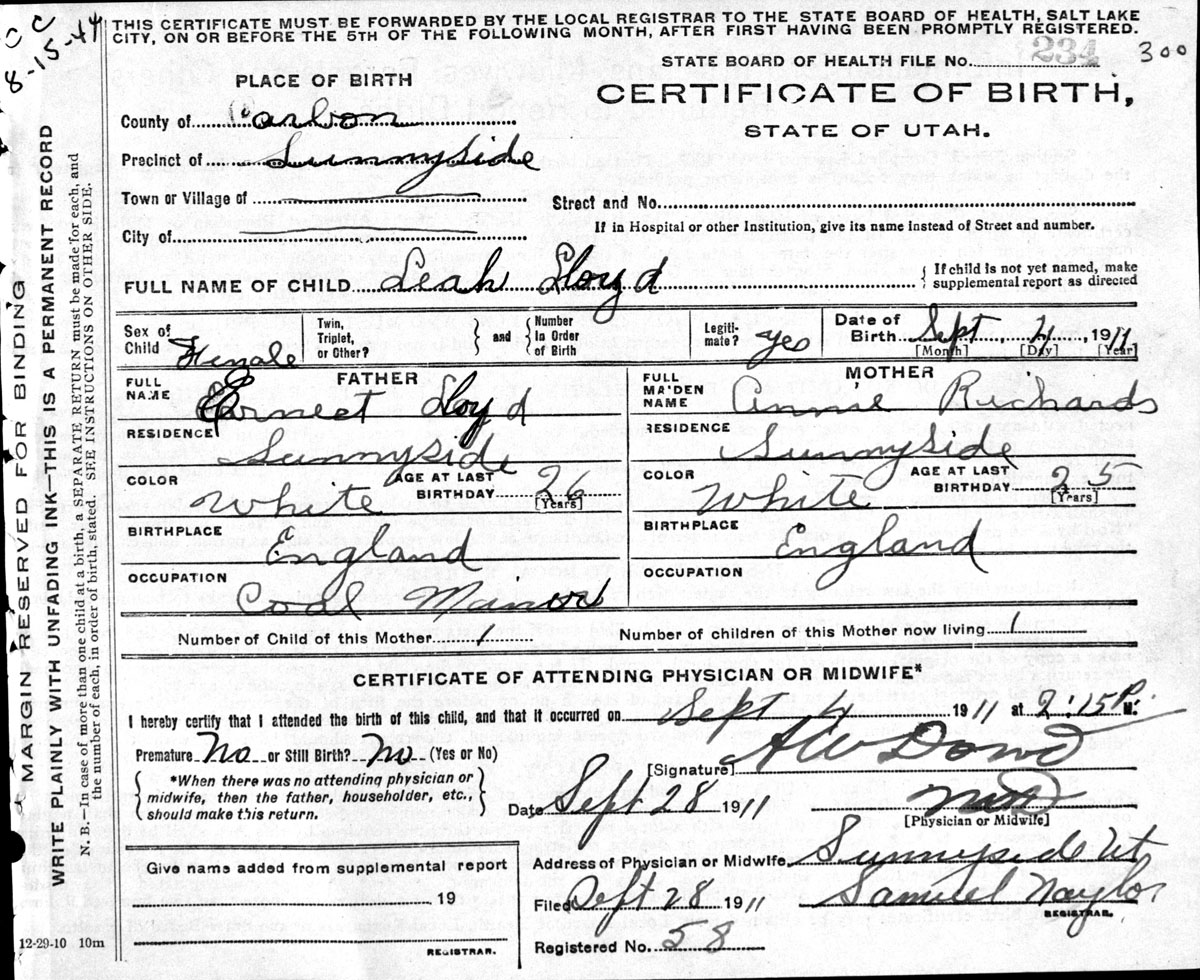 C C
8-15-44
THIS CERTIFICATE MUST BE FORWARDED BY THE LOCAL REGISTRAR TO THE STATE BOARD OF HEALTH, SALT LAKE
CITY, ON OR BEFORE THE 5TH OF THE FOLLOWING MONTH, AFTER FIRST HAVING BEEN PROMPTLY REGISTERED.
STATE BOARD OF HEALTH FILE No. 234 300
PLACE OF BIRTH
CERTIFICATE OF BIRTH,
STATE OF UTAH.
County of Carbon
Precinct of Sunnyside
Town or Village of
Street and No.
City of
If in Hospital or other Institution, give its name instead of Street and number.
FULL NAME OF CHILD Leah Lloyd { If child is not yet named, make
supplemental report as directed
Sex of
Child Female
Twin,
Triplet,
or Other?
} and {
Number
In Order
of Birth
Legiti-
mate? yes
Date of
Birth Sept. 4, 1911
[Month] [Day] [Year]
FATHER
FULL
NAME Earnest Lloyd
RESIDENCE
Sunnyside
COLOR White
AGE AT LAST
BIRTHDAY 26
[Years]
BIRTHPLACE
England
OCCUPATION
Coal Mainor
MOTHER
FULL
MAIDEN
NAME Annie Richards
RESIDENCE
Sunnyside
COLOR White
AGE AT LAST
BIRTHDAY 25
[Years]
BIRTHPLACE
England
OCCUPATION
Number of Child of this Mother 1 Number of children of this Mother now living 1
CERTIFICATE OF ATTENDING PHYSICIAN OR MIDWIFE*
I hereby certify that I attended the birth of this child, and that it occurred on Sept 4 1911 at 2:15 P. M.
Premature No or Still Birth? No (Yes or No)
[Signature] A W Dowd
{ *When there was no attending physician or
midwife, then the father, householder, etc.,
should make this return. }
Date Sept 28 1911
[Physician or Midwife]
Give name added from supplemental report
19
REGISTRAR.
Address of Physician or Midwife Sunnyside Ut
Filed Sept 28 1911 Samuel Naylor
REGISTRAR.
Registered No. 58
12-29-10 10m
MARGIN RESERVED FOR BINDING
WRITE PLAINLY WITH UNFADING INK—THIS IS A PERMANENT RECORD
N. B.—In case of more than one child at a birth, a SEPARATE RETURN must be made for each, and
the number of each, in order of birth, stated. SEE INSTRUCTIONS ON OTHER SIDE.